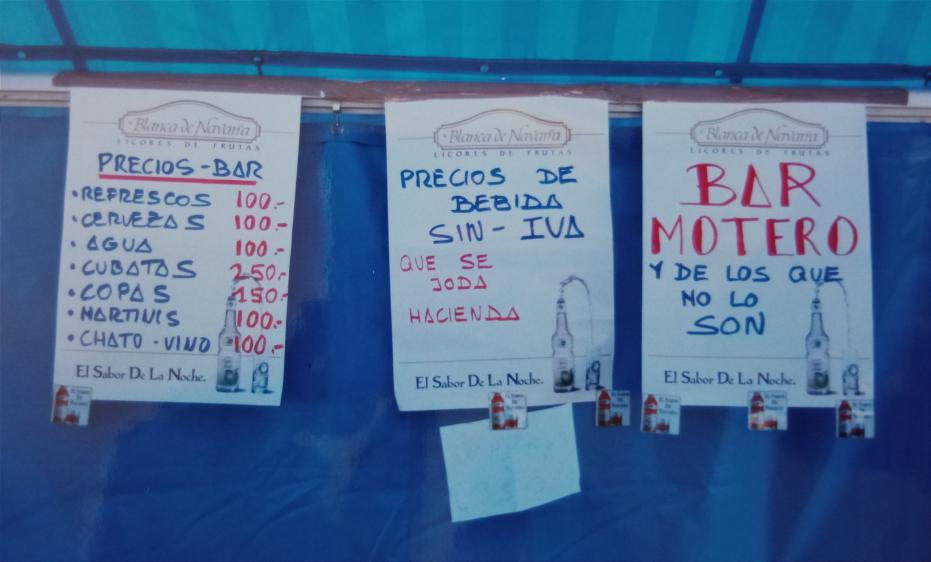 Blanca de Navarra
LICORES DE FRUTAS
PRECIOS-BAR
• REFRESCOS 100.-
• CERVEZAS 100.-
• AGUA 100.-
• CUBATAS 250.-
• COPAS 150.-
• MARTINIS 100.-
• CHATO-VINO 100.-
El Sabor De La Noche.
Blanca de Navarra
LICORES DE FRUTAS
PRECIOS DE
BEBIDA
SIN-IVA
QUE SE
JODA
HACIENDA
El Sabor De La Noche.
Blanca de Navarra
LICORES DE FRUTAS
BAR
MOTERO
Y DE LOS QUE
NO LO
SON
El Sabor De La Noche.